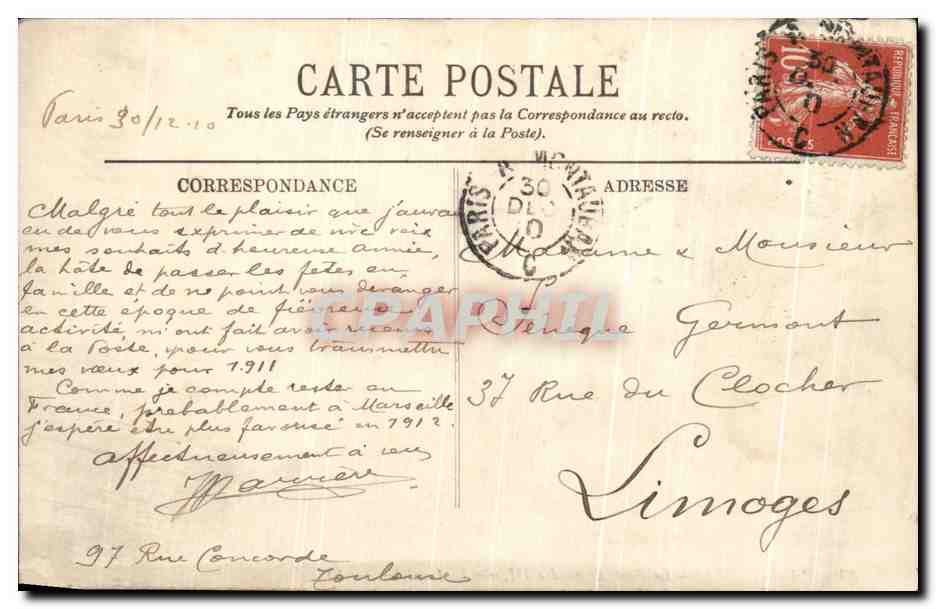 CARTE POSTALE
Tous les Pays étrangers n'acceptent pas la Correspondance au recto.
(Se renseigner à la Poste).
Paris 30/12.10
REPUBLIQUE FRANÇAISE
10
POSTES
PARIS R. MONTAIGNE
30
DEC
10
CORRESPONDANCE
ADRESSE
Malgré tout le plaisir que j'aurai
eu de vous exprimer de vive voix
mes souhaits d'heureuse année,
la hâte de passer les fêtes en
famille et de ne point vous déranger
en cette époque de fiévreuse
activité m'ont fait avoir recours
à la Poste, pour vous transmettre
mes vœux pour 1911
Comme je compte rester en
France, probablement à Marseille
j'espère être plus favorisé en 1912.
affectueusement à vous
97 Rue Concorde
Toulouse
Madame & Monsieur
Germont
37 Rue du Clocher
Limoges
CPAPHIL